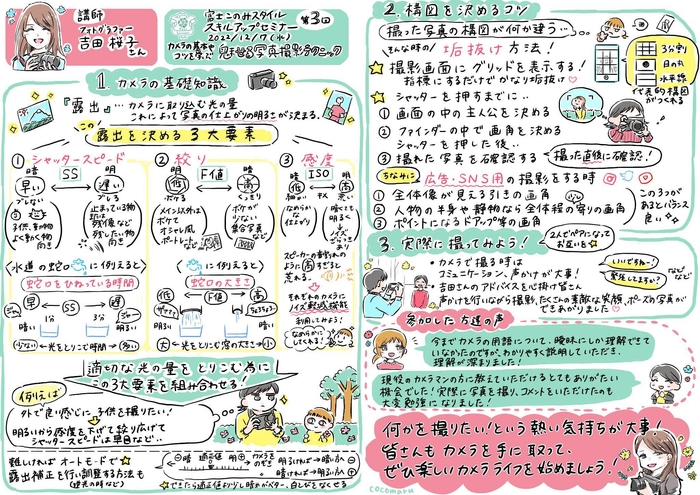 講師
フォトグラファー
吉田 桜子さん
富士このみスタイル
スキルアップセミナー
2022/12/7(水)
第3回
カメラの基本やコツを学んで
魅せる写真撮影テクニック
1. カメラの基礎知識
『露出』…カメラに取り込む光の量
これによって写真の仕上がりの明るさが決まる。
この
露出を決める3大要素
① シャッタースピード
暗 SS 明
早い 遅い
ブレない ブレる
子供、車の物
よく動く物向き
止まっている物
残像など
残したい物向き
② 絞り
明 F値 暗
低 高
ボケる くっきり
メイン以外は
ボケて
オシャレ風
ポートレートなど
ボケが
少ない
集合写真
など
③ 感度
暗 ISO 明
低 高
細かい 荒い
なめらかな
仕上がり
暗くても
明るく
ノイズが
ざらつきあり
スピーカーの音割れの
ように高すぎると
荒れる。
それぞれのカメラに
ノイズ軽減機能
利用してみよう!
なめらかに
してくれる!
〈水道の蛇口に例えると〉
蛇口をひねっている時間
早 SS 遅
1分 3分
暗い 明るい
少ない 光をとりこむ時間 多い
〈に例えると〉
蛇口の大きさ
低 F値 高
明るい 暗い
大 光をとりこむ窓の大きさ 小
適切な光の量をとりこむ為に
この3大要素を組み合わせる!
例えば
外で良い感じに子供を撮りたい!
明るいから感度を下げて絞り広げて
シャッタースピードは早目など…
難しければオートモードで
露出補正を行い調整する方法も
(逆光の時など)
暗 適正値 明
カメラを
のぞき
明るければ→暗い方へ
暗ければ→明るい方へ
できたら適正値より少し暗めがベター、白とびをなくせる
2. 構図を決めるコツ
撮った写真の構図が何か違う…
そんな時の 垢抜け方法!
撮影画面にグリッドを表示する!
指標にするだけでかなり垢抜け
3分割
日の丸
水平線
などで代表的構図
がつくれる
シャッターを押すまでに…
① 画面の中の主人公を決める
② ファインダーの中で画角を決める
シャッターを押した後…
③ 撮れた写真を確認する
撮った直後に確認!
ちなみに 広告・SNS用の撮影をする時
① 全体像が見える引きの画角
② 人物の半身や静物なら全体程の寄りの画角
③ ポイントになるドアップ等の画角
この3つが
あるとバランス
良い
3. 実際に撮ってみよう!
2人でペアになって
お互いを
・カメラで撮る時は
コミュニケーション、声かけが大事!
・吉田さんのアドバイスを心掛け皆さん
声かけを行いながら撮影、たくさんの素敵な笑顔、ポーズの写真が
できあがりました
いいですね〜!
緊張してますか?
など
参加した方達の声
今までカメラの用語について、曖昧にしか理解できて
いなかったのですが、わかりやすく説明していただき、
理解が深まりました!
現役のカメラマンの方に教えていただけるとてもありがたい
機会でした!実際に写真を撮り、コメントをいただけたのも
大変勉強になりました!
何かを撮りたい!という熱い気持ちが大事!
皆さんもカメラを手に取って、
ぜひ楽しいカメラライフを始めましょう!
cocomaru